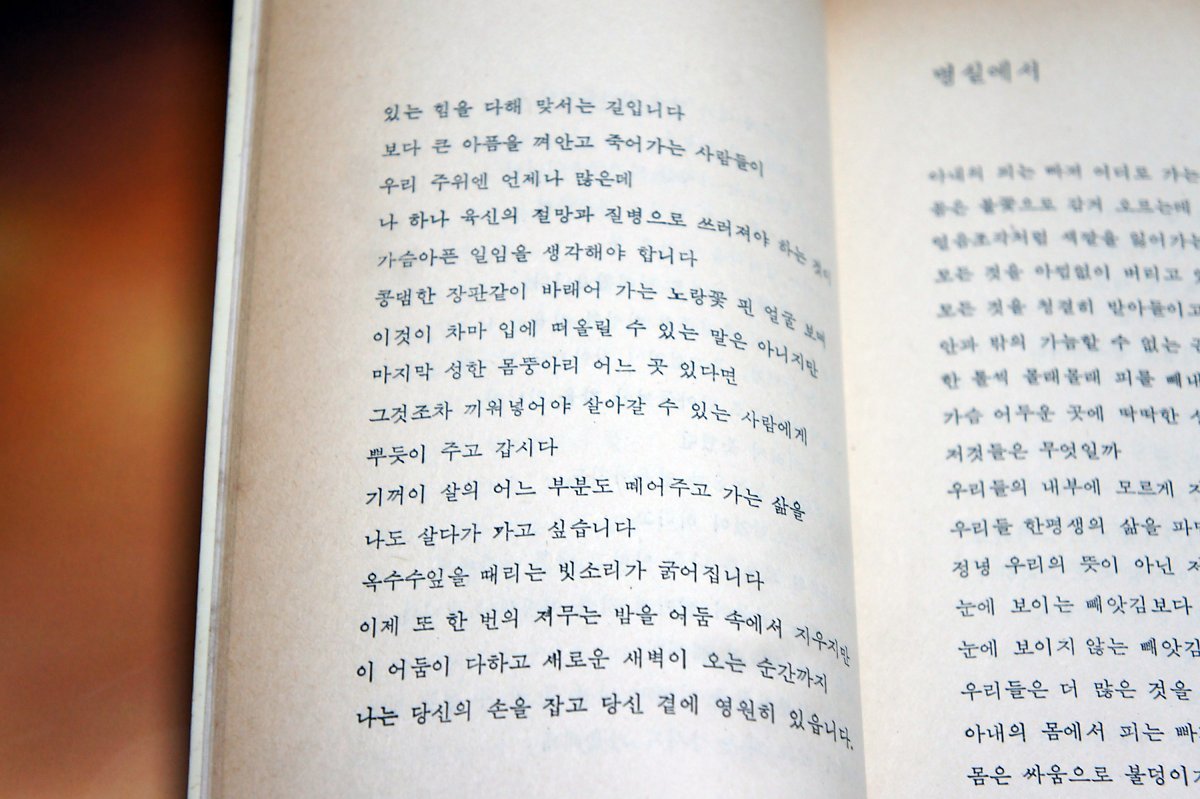 있는 힘을 다해 맞서는 길입니다
보다 큰 아픔을 껴안고 죽어가는 사람들이
우리 주위엔 언제나 많은데
나 하나 육신의 절망과 질병으로 쓰러져야 하는 것이
가슴아픈 일임을 생각해야 합니다
콩댐한 장판같이 바래어 가는 노랑꽃 핀 얼굴 보며
이것이 차마 입에 떠올릴 수 있는 말은 아니지만
마지막 성한 몸뚱아리 어느 곳 있다면
그것조차 끼워넣어야 살아갈 수 있는 사람에게
뿌듯이 주고 갑시다
기꺼이 살의 어느 부분도 떼어주고 가는 삶을
나도 살다가 가고 싶습니다
옥수수잎을 때리는 빗소리가 굵어집니다
이제 또 한 번의 저무는 밤을 어둠 속에서 지우지만
이 어둠이 다하고 새로운 새벽이 오는 순간까지
나는 당신의 손을 잡고 당신 곁에 영원히 있읍니다.
병실에서
아내의 피는 빠져 어디로 가는
몸은 불꽃으로 감겨 오르는데
얼음조각처럼 색깔을 잃어가는
모든 것을 아낌없이 버리고
모든 것을 청결히 받아들이고
안과 밖의 가늠할 수 없는
한 톨씩 몰래몰래 피를 빼내
가슴 어두운 곳에 딱딱한
저것들은 무엇일까
우리들의 내부에 모르게
우리들 한평생의 삶을 파먹
정녕 우리의 뜻이 아닌
눈에 보이는 빼앗김보다
눈에 보이지 않는 빼앗김
우리들은 더 많은 것을
아내의 몸에서 피는 빠
몸은 싸움으로 불덩이